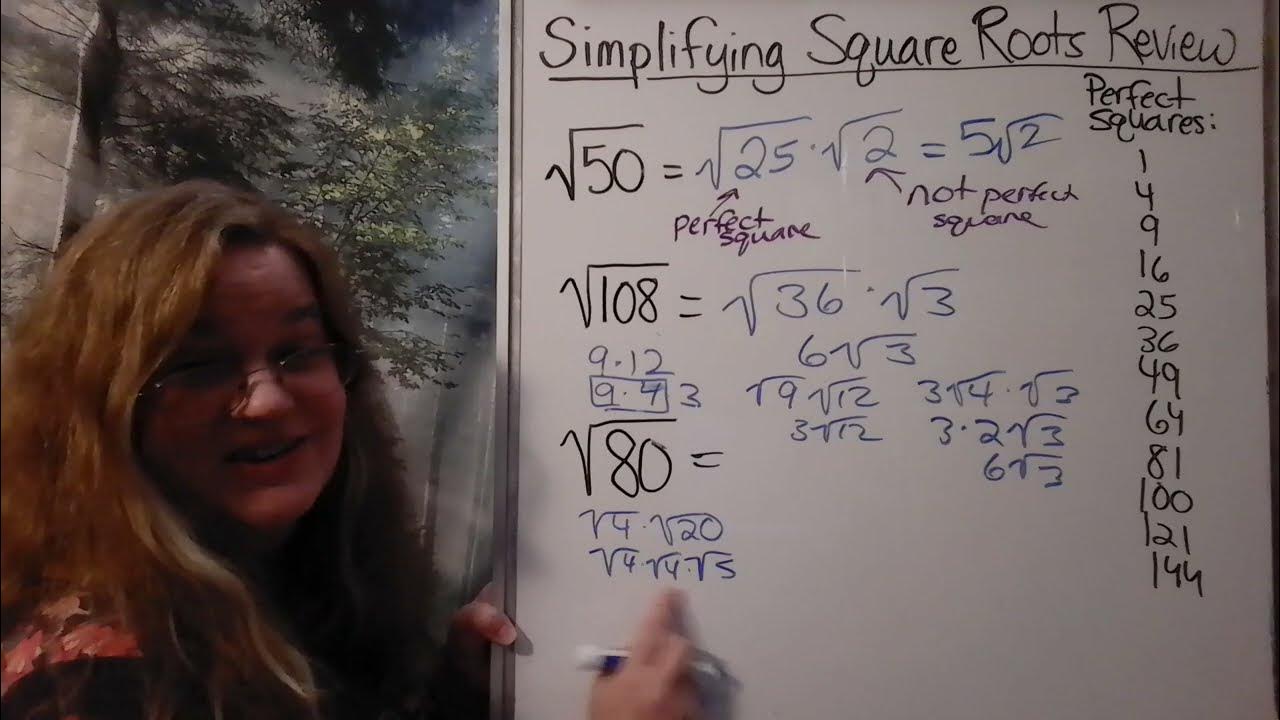 Simplifying Square Roots Review
Perfect
squares:
1
4
9
16
25
36
49
64
81
100
121
144
√50 = √25 · √2 = 5√2
perfect
square
not perfect
square
√108 = √36 · √3
6√3
9·12
9·4 3
√9 √12
3√12
3√4 · √3
3·2√3
6√3
√80 =
√4 · √20
√4 · √4 · √5